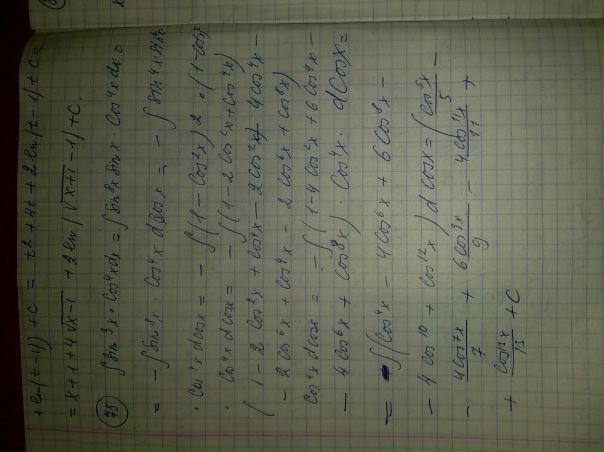 + ln(t-1)) + C = t2 + 4t + 2ln(t-1) + C =
= x+1+4√x-1 + 2ln|√x+1 -1)+C.
75 ∫sin⁹x • Cos⁴xdx = ∫sin⁸x sinx • Cos⁴x dx =
= -∫sin⁸x • Cos⁴x dcosx = -∫sin⁴x
• Cos⁴x dcosx = -∫(1-Cos²x)2 • (1-cos
• Cos⁴x dcosx = -∫(1-2cos²x+cos⁴x)
(1-2cos²x+cos⁴x-2cos²x+4cos⁴x-
-2cos⁶x+cos⁴x-2cos⁶x+cos⁸x)
Cos⁴x dcosx = -∫(1-4cos²x+6cos⁴x-
-4cos⁶x+cos⁸x) • Cos⁴x • dCosx =
= ∫(Cos⁴x - 4Cos⁶x + 6Cos⁸x -
- 4cos¹⁰ + cos¹²x) dcosx = (cos⁵x/5 -
- 4cos⁷x/7 + 6cos⁹x/9 - 4cos¹¹x/11 +
+ cos¹³x/13 + C